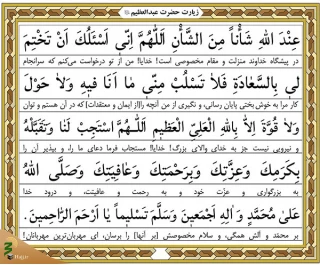 زیارت حضرت عبدالعظیم
عِنْدَ اللهِ شَأْناً مِنَ الشَّأْنِ اَللّٰهُمَّ اِنّی اَسْئَلُكَ اَنْ تَخْتِمَ
در پیشگاه خداوند منزلت و مقام مخصوصی است! خدایا! من از تو درخواست می‌کنم که سرانجام
لی بِالسَّعادَةِ فَلا تَسْلُبْ مِنّی ما اَنَا فیهِ وَلا حَوْلَ
کار مرا به خوش‌بختی پایان رسانی، و نگیری از من آنچه را [از ایمان و معتقدات] که در آن هستم و توان
وَلا قُوَّةَ اِلّا بِاللهِ الْعَلِیِّ الْعَظیمِ اَللّٰهُمَّ اسْتَجِبْ لَنا وَتَقَبَّلْهُ
و نیرویی نیست جز به خدای والای بزرگ! خدایا! مستجاب فرما دعای ما را، و بپذیر آن را
بِكَرَمِكَ وَعِزَّتِكَ وَبِرَحْمَتِكَ وَعافِیَتِكَ وَصَلَّی اللهُ
به بزرگواری و عزّت خود و به رحمت و عافیتت، و درود خدا
عَلیٰ مُحَمَّدٍ وَ الِهِ اَجْمَعینَ وَسَلَّمَ تَسْلیماً یا اَرْحَمَ الرّاحِمینَ.
بر محمّد و آلش همگی، و سلام مخصوصش [بر آنها] را برسان، ای مهربان‌ترین مهربانان!
Hajij